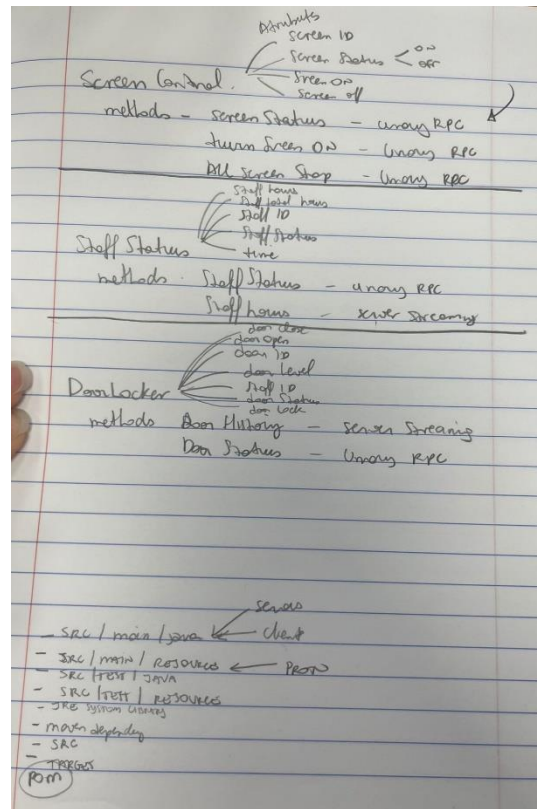 Atributes
Screen ID
Screen Status < ON
OFF
Screen ON
Screen off
Screen Control.
methods - Screen Status - unary RPC
turn Screen ON - Unary RPC
All Screen Stop - Unary RPC
Staff hours
Staff total hours
Staff ID
Staff Status
time
Staff Status
methods Staff Status - unary RPC
Staff hours - server streaming
door close
door open
door ID
door Level
Staff ID
door Status
door Lock
Door Locker
methods Door History - server streaming
Door Status - Unary RPC
servers
- SRC / main / java client
- SRC / MAIN / RESOURCES PROTO
- SRC / TEST / JAVA
- SRC / TEST / RESOURCES
- JRE System LIBRARY
- maven dependecy
- SRC
- TARGET
POM